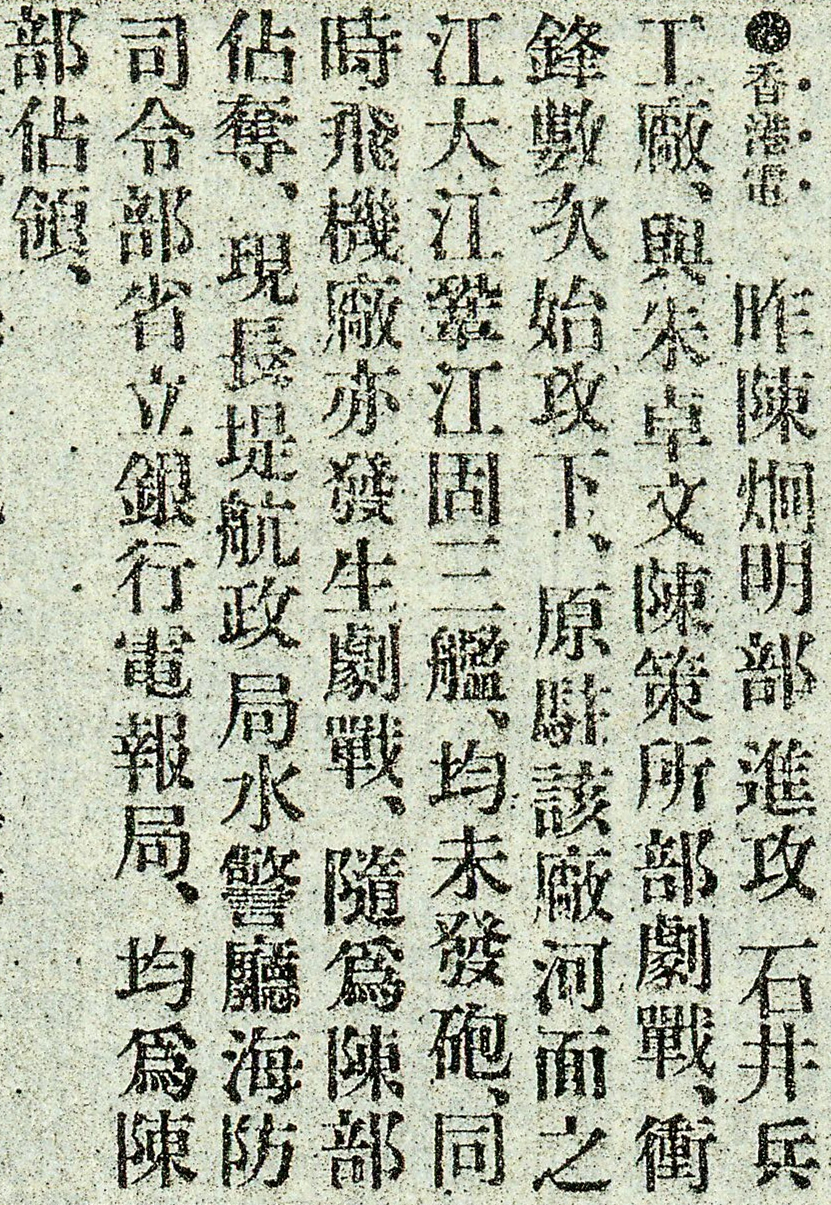 ●香港電　昨陳炯明部進攻石井兵
工廠、與朱卓文陳策所部劇戰、衝
鋒數次始攻下、原駐該廠河面之
江大江鞏江固三艦、均未發砲、同
時飛機廠亦發生劇戰、隨爲陳部
佔奪、現長堤航政局水警廳海防
司令部省立銀行電報局、均爲陳
部佔領、